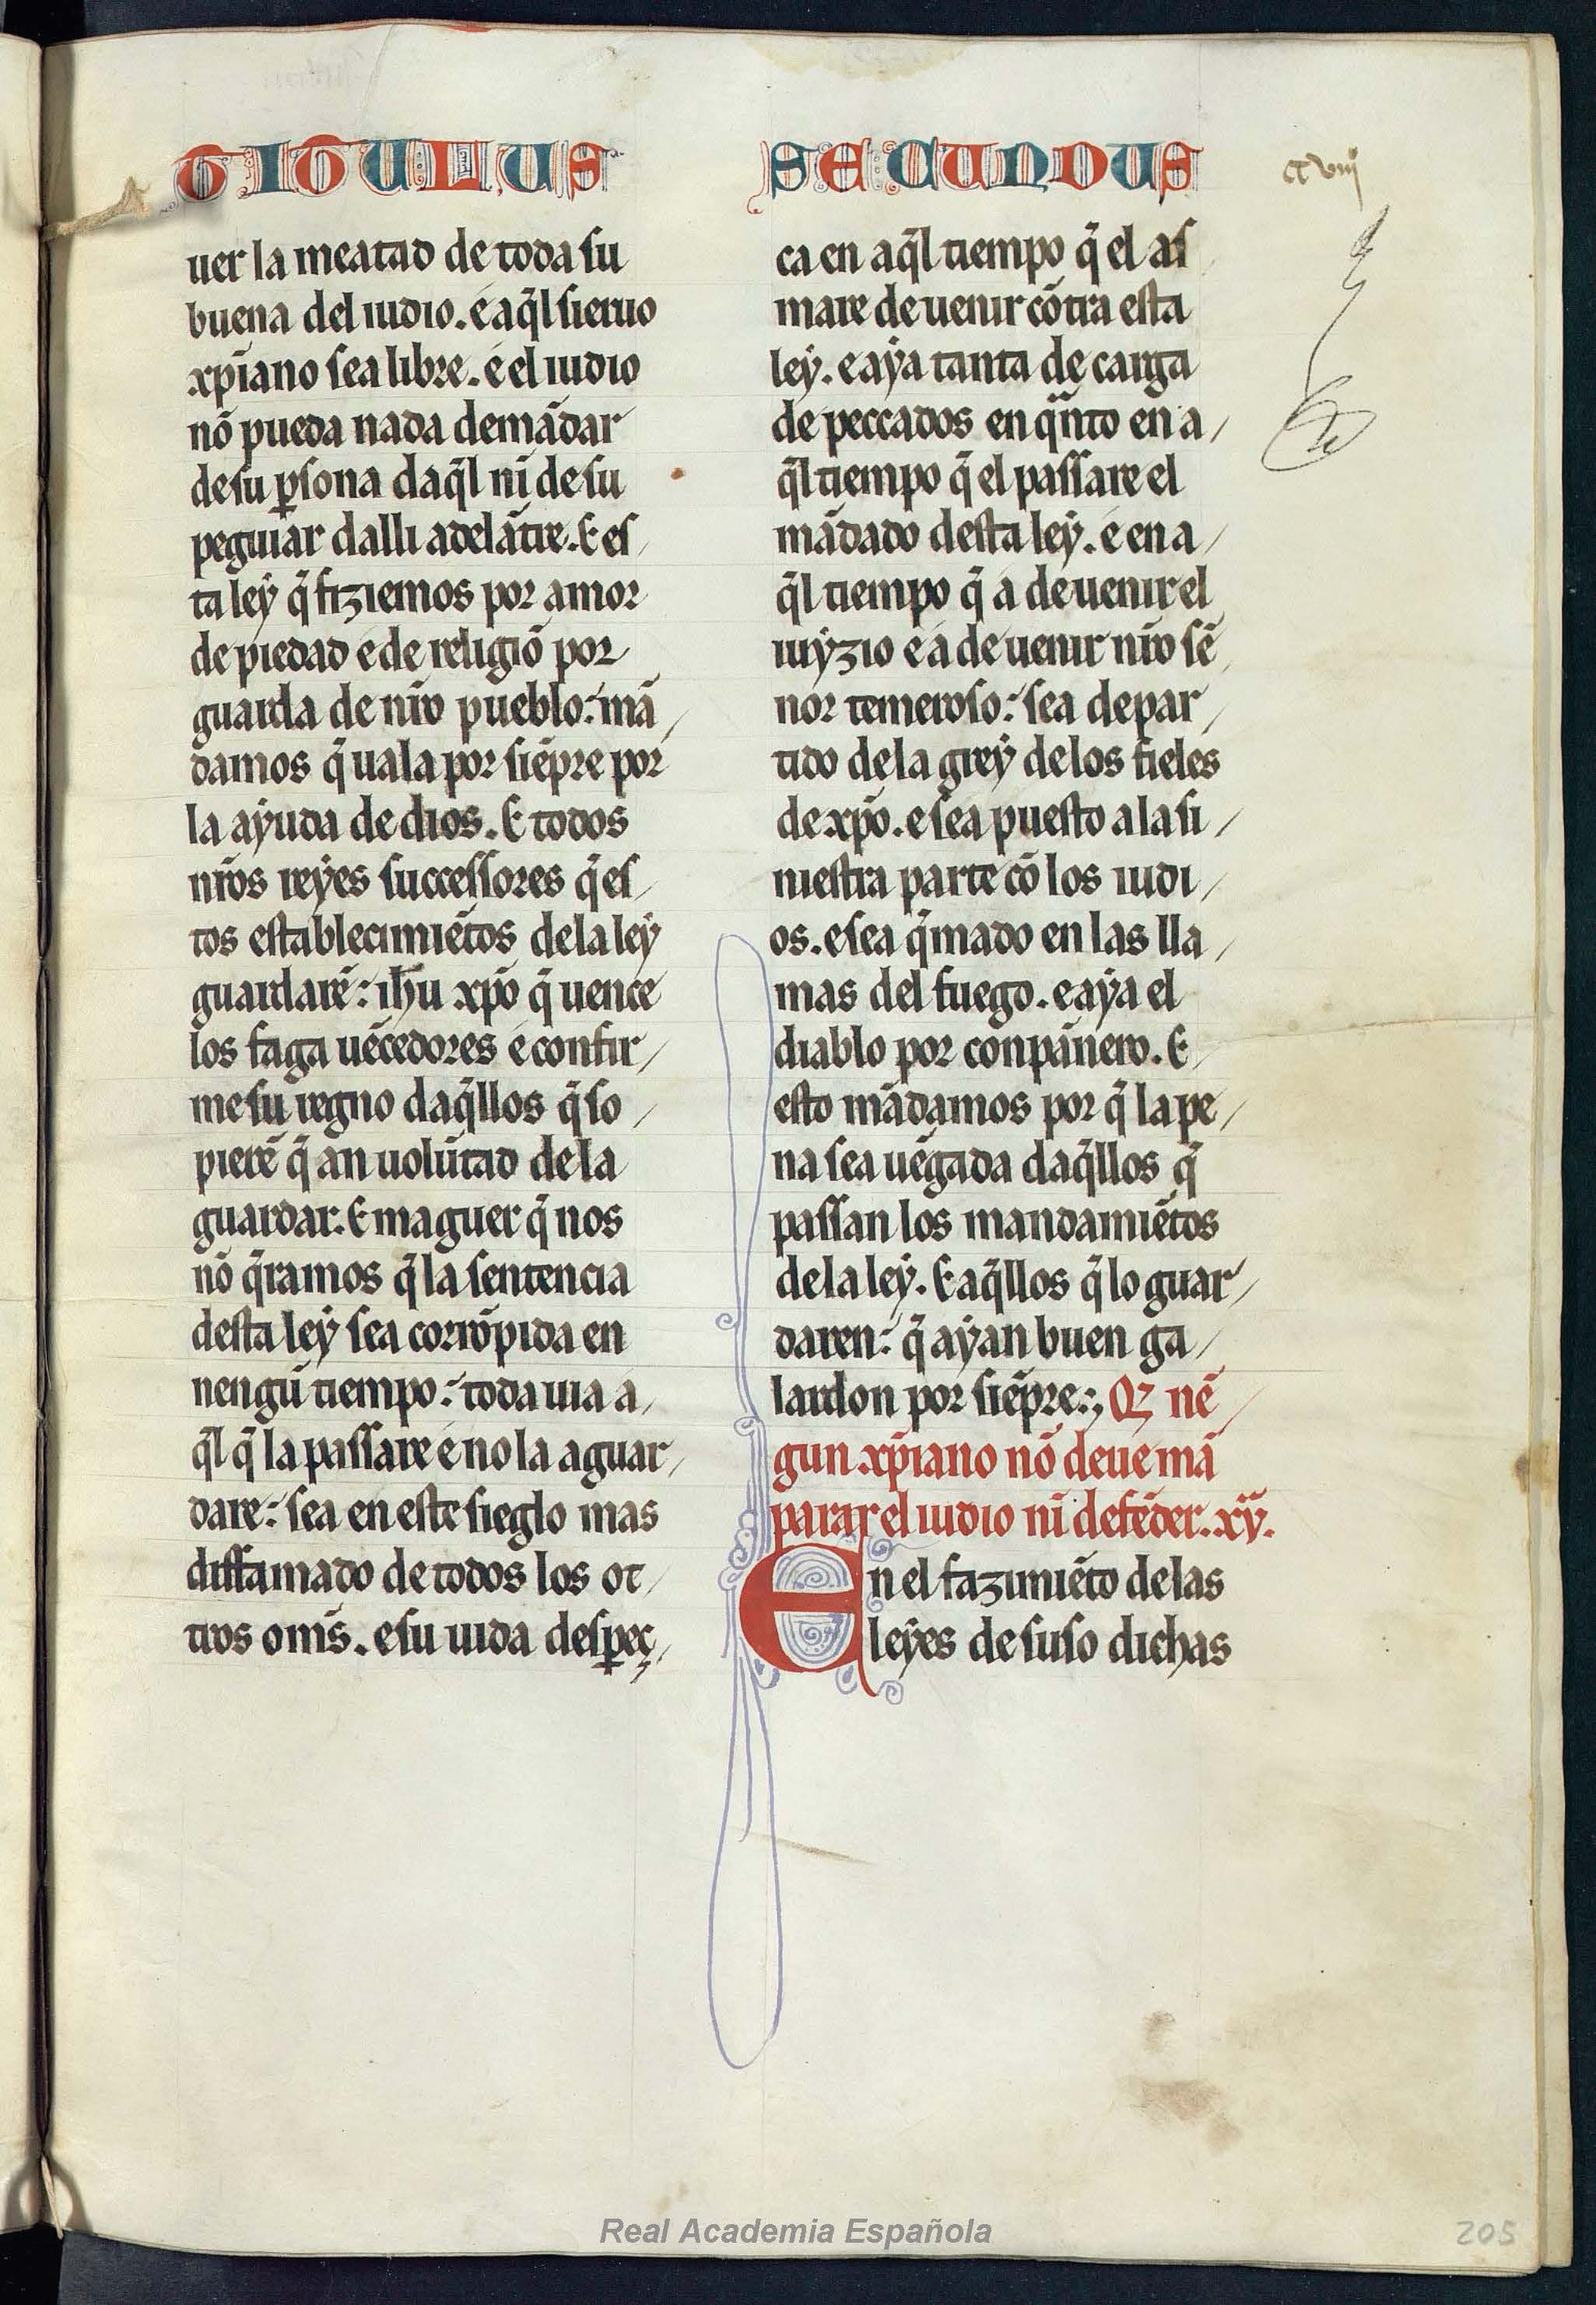 TITULUS
uer la meatad de toda su
buena del iudio. é aq̃l sieruo
xp̃iano sea libre. é el iudio
nõ pueda nada demãdar
de su ꝑsona daq̃l nĩ de su
peguiar dalli adelãtre. E es
ta ley q̃ fiziemos por amor
de piedad e de religiõ por
guarda de nr̃o pueblo: mã
damos q̃ uala por siẽpre por
la ayuda de dios. E todos
nr̃os reyes successores q̃ es
tos establecimiẽtos de la ley
guardarẽ: ihu xp̃o q̃ uence
los faga uẽcedores e confir
me su regno daq̃llos q̃ so
pierẽ q̃ an uolũtad de la
guardar. E maguer q̃ nos
nõ q̃ramos q̃ la sentencia
desta ley sea corrõpida en
nengũ tiempo: toda uia a
q̃l q̃ la passare é no la aguar
dare: sea en este sieglo mas
diffamado de todos los ot
tros om̃s. e su uida desꝑeç
SECUNDUS
ca en aq̃l tiempo q̃ el as
mare de uenir cõtra esta
ley. e aya tanta de carga
de peccados en q̃nto en a
q̃l tiempo q̃ el passare el
mãdado desta ley. é en a
q̃l tiempo q̃ á de uenir el
iuyzio e á de uenir nr̃o sẽ
nor temeroso: sea depar
tido de la grey de los fieles
de xp̃o. e sea puesto a la si
niestra parte cõ los iudi
os. e sea q̃mado en las lla
mas del fuego. e aya el
diablo por conpãnero. E
esto mãdamos por q̃ la pe
na sea uẽgada daq̃llos q̃
passan los mandamiẽtos
de la ley. E aq̃llos q̃ lo guar
daren: q̃ ayan buen ga
lardon por siẽpre:, Qz nẽ
gun xp̃iano nõ deue mã
parar el iudio nĩ defẽder. xv.
En el fazimiẽto de las
leyes de suso dichas
Real Academia Española
205